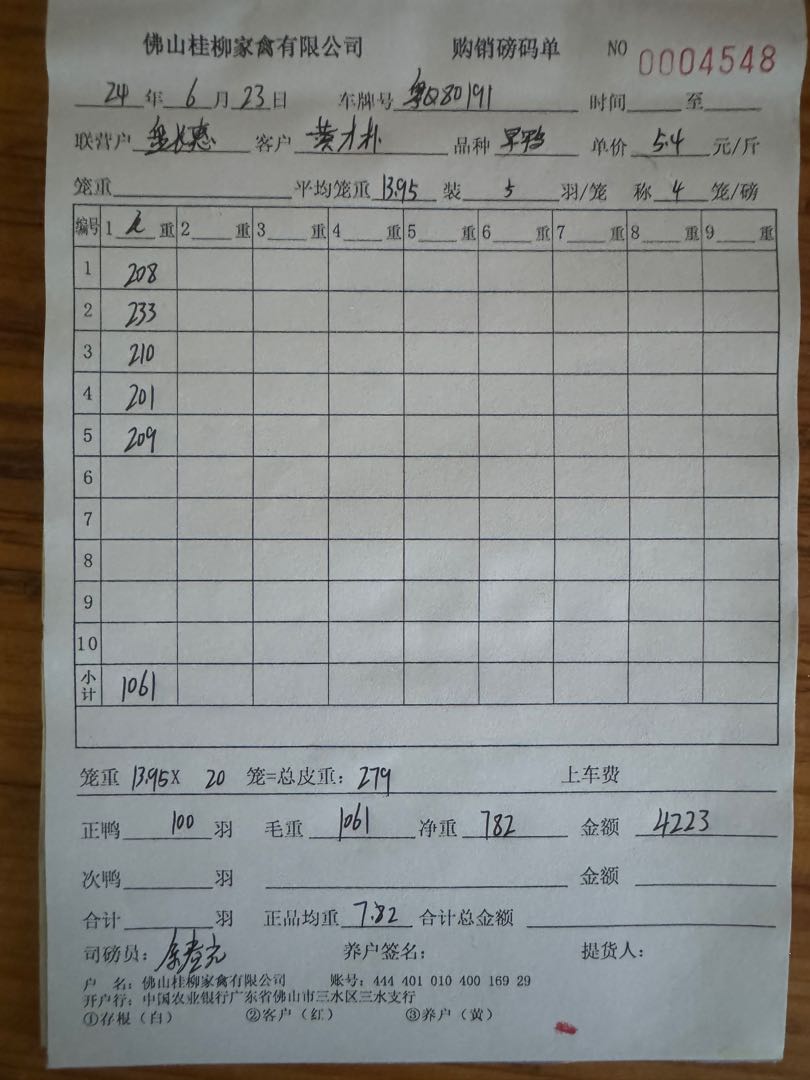 佛山桂柳家禽有限公司 购销磅码单 NO 0004548
24年6月23日 车牌号 粤Q80191 时间 至
联营户 客户 黄才 品种 旱鸭 单价 5.4 元/斤
笼重 平均笼重 13.95 装 5 羽/笼 称 4 笼/磅
编号 1 重 2 重 3 重 4 重 5 重 6 重 7 重 8 重 9 重
1 208
2 233
3 210
4 201
5 209
6
7
8
9
10
小计 1061
笼重 13.95X 20 笼=总皮重: 279 上车费
正鸭 100 羽 毛重 1061 净重 782 金额 4223
次鸭 羽 金额
合计 羽 正品均重 7.82 合计总金额
司磅员: 养户签名: 提货人:
户 名: 佛山桂柳家禽有限公司 账号: 444 401 010 400 169 29
开户行: 中国农业银行广东省佛山市三水区三水支行
①存根（白） ②客户（红） ③养户（黄）